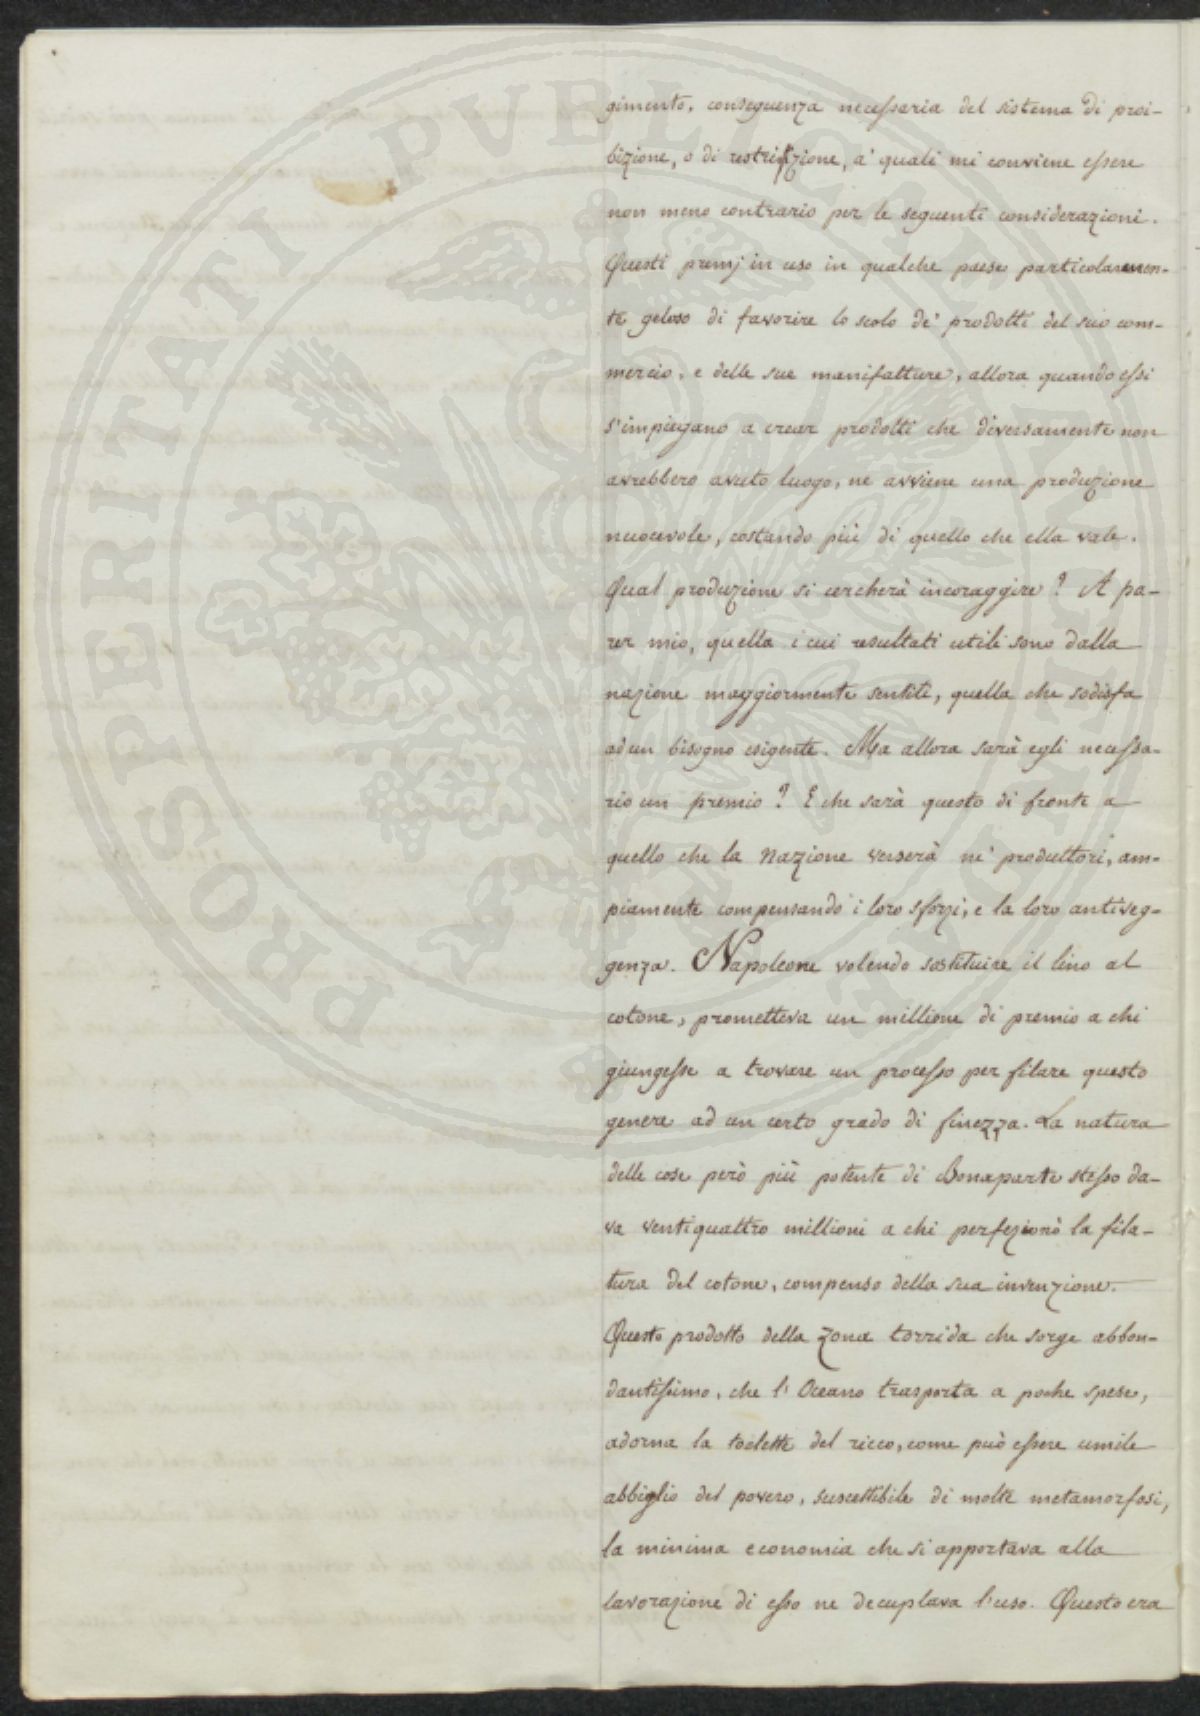 gimento, conseguenza necessaria del sistema di proi-
bizione, o di restrizione, a' quali mi conviene essere
non meno contrario per le seguenti considerazioni.
Questi premj in uso in qualche paese particolarmen-
te geloso di favorire lo scolo de' prodotti del suo com-
mercio, e delle sue manifatture, allora quando essi
s'impiegano a crear prodotti che diversamente non
avrebbero avuto luogo, ne avviene una produzione
nuocevole, costando più di quello che ella vale.
Qual produzione si cercherà incoraggire? A pa-
rer mio, quella i cui resultati utili sono dalla
nazione maggiormente sentiti, quella che sodisfa
ad un bisogno esigente. Ma allora sarà egli necessa-
rio un premio? E che sarà questo di fronte a
quello che la Nazione verserà ne' produttori, am-
piamente compensando i loro sforzi, e la loro antiveg-
genza. Napoleone volendo sostituire il lino al
cotone, prometteva un millione di premio a chi
giungesse a trovare un processo per filare questo
genere ad un certo grado di finezza. La natura
delle cose però più potente di Bonaparte stesso da-
va ventiquattro millioni a chi perfezionò la fila-
tura del cotone, compenso della sua invenzione.
Questo prodotto della zona torrida che sorge abbon-
dantissimo, che l'Oceano trasporta a poche spese,
adorna la toelette del ricco, come può essere umile
abbiglio del povero, suscettibile di molte metamorfosi,
la minima economia che si apportava alla
lavorazione di esso ne decuplava l'uso. Questo era
PROSPERITATI PUBLICAE AUGENDAE